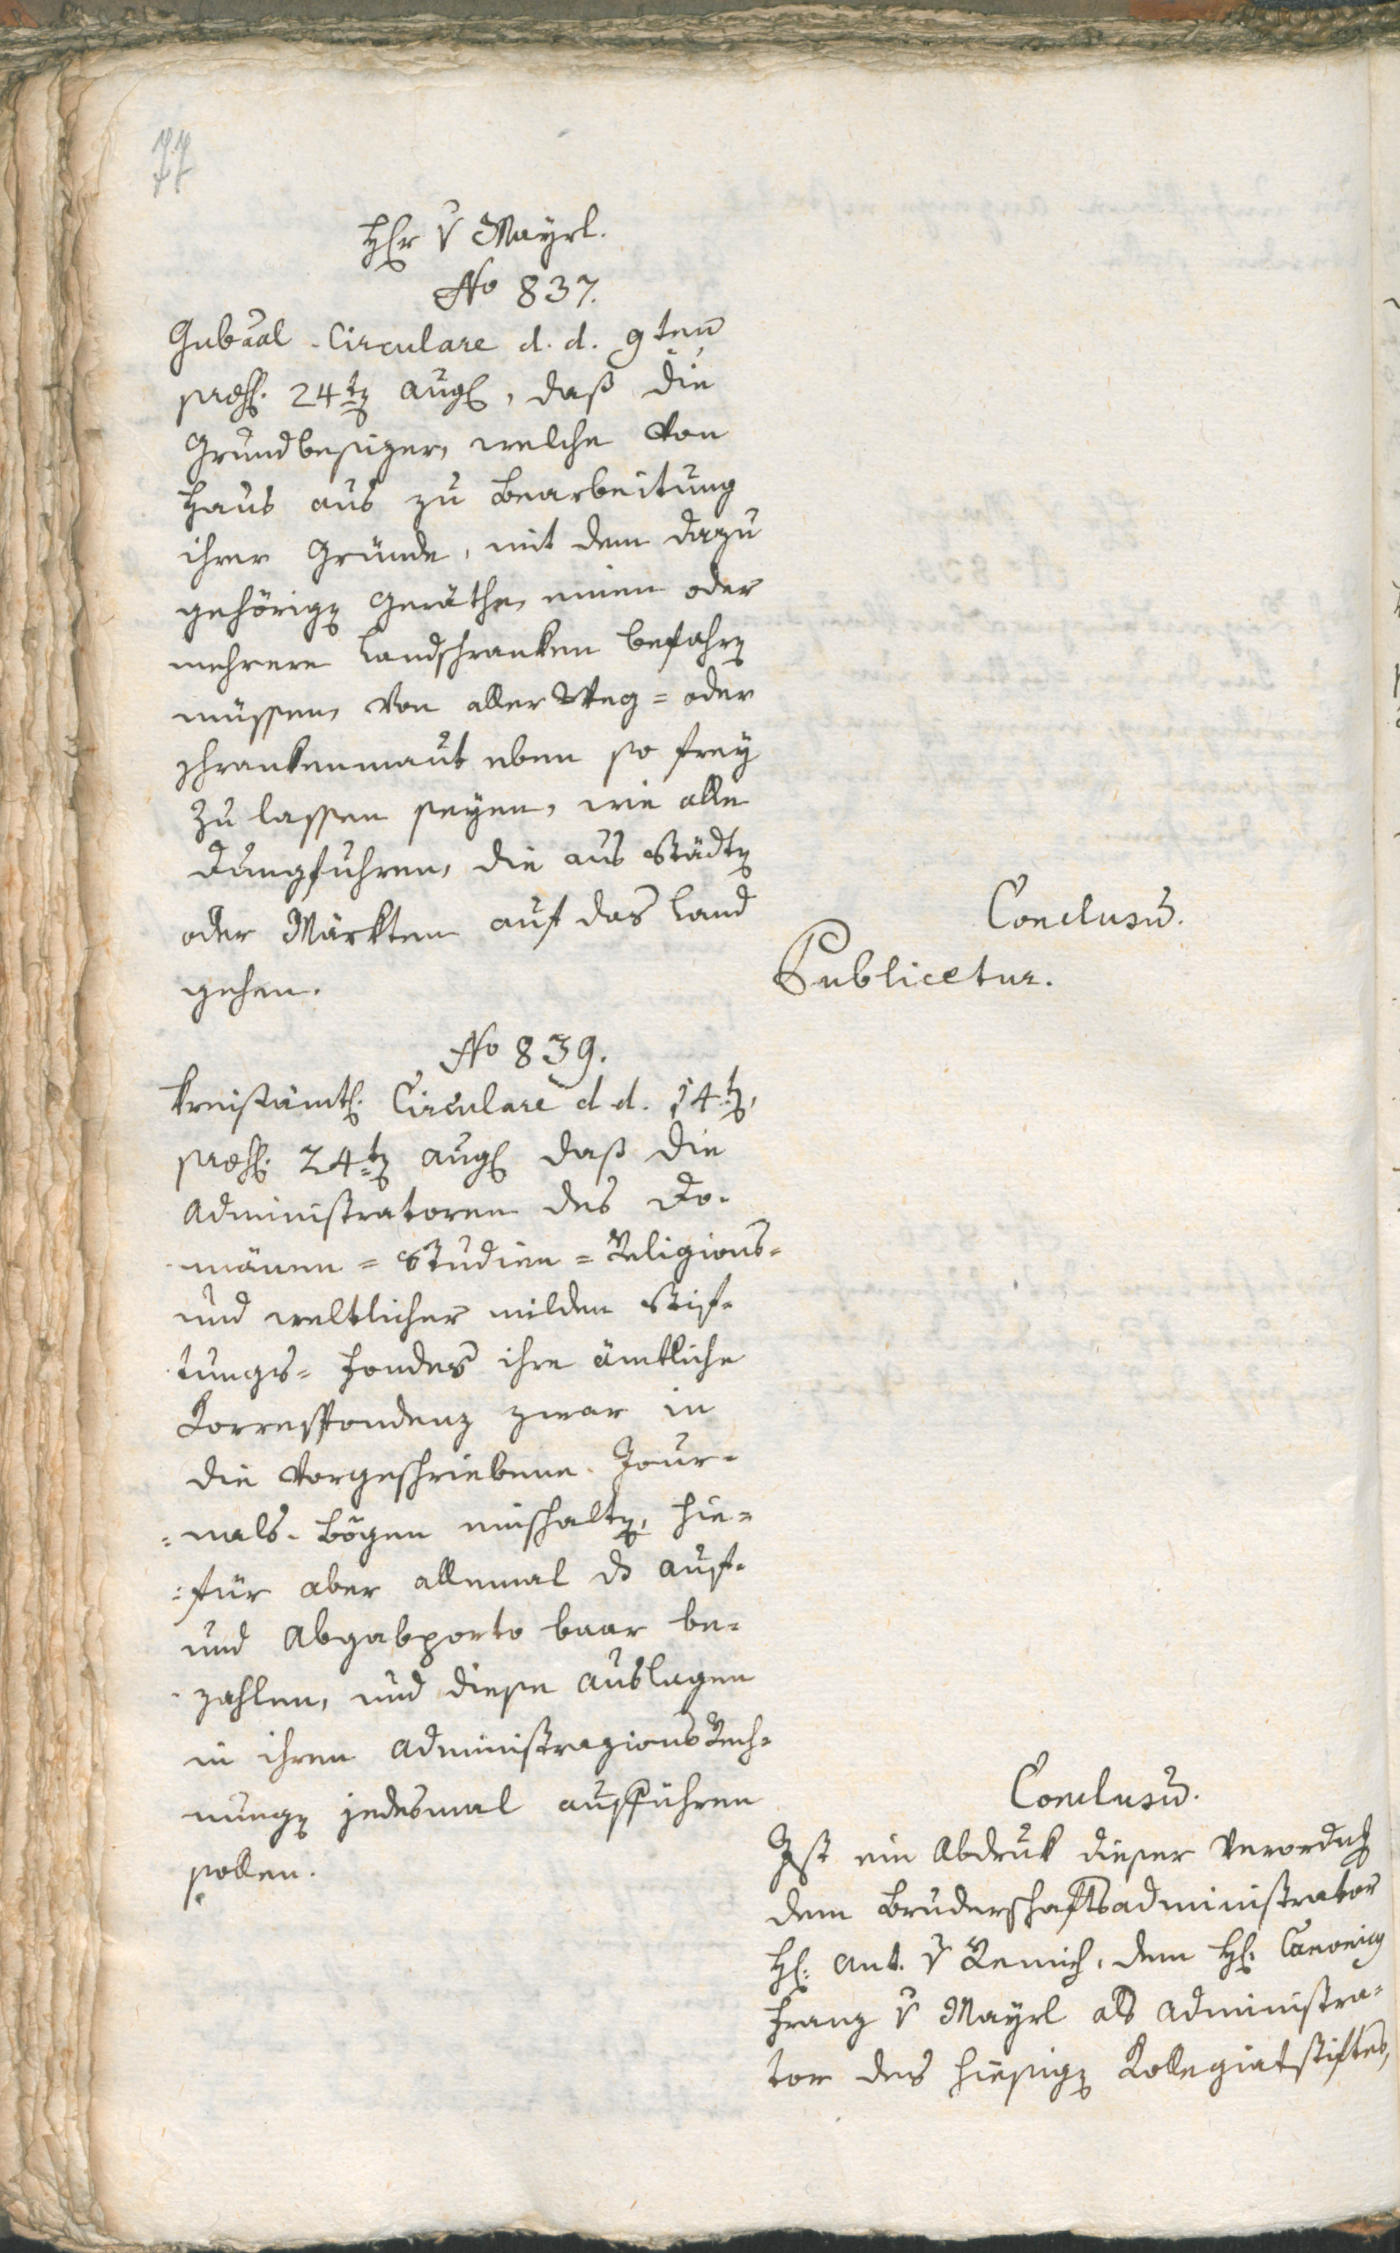 77
Hr v Mayrl.
No 837.
Gub͠al-Circulare d. d. 9ten
praes. 24ten Aug, daß die
Grundbesizer, welche von
Haus aus zu Bearbeitung
ihrer Gründe, mit dem dazu
gehörigen Geräthe, einen oder
mehrere Landschranken befahren
müssen, von aller Weg- oder
Schrankenmaut eben so frey
zu lassen seyen, wie alle
Dungfuhren, die aus Städten
oder Märkten auf das Land
gehen.
Conclusum.
Publicetur.
No 839.
Kreisämtl. Circulare d d. 14ten,
praes. 24ten Aug daß die
Administratoren des Do-
mänen- Studien- Religions-
und weltlicher milden Stif-
tungs- Fondes ihre ämtliche
Korrespondenz zwar in
die vorgeschriebene Jour-
nals-Bögen einschalten, hie-
für aber allemal das Auf-
und Abgabporto baar be-
zahlen, und diese Auslagen
in ihren Administrazions Rech-
nungen jedesmal aufführen
sollen.
Conclusum.
Ist ein Abdruk dieser Verordnung
dem Bruderschaftsadministrator
H: Ant. v Remich, dem H: Canonicus
Franz v Mayrl als Administra-
tor des hiesigen Kollegiatstiftes,